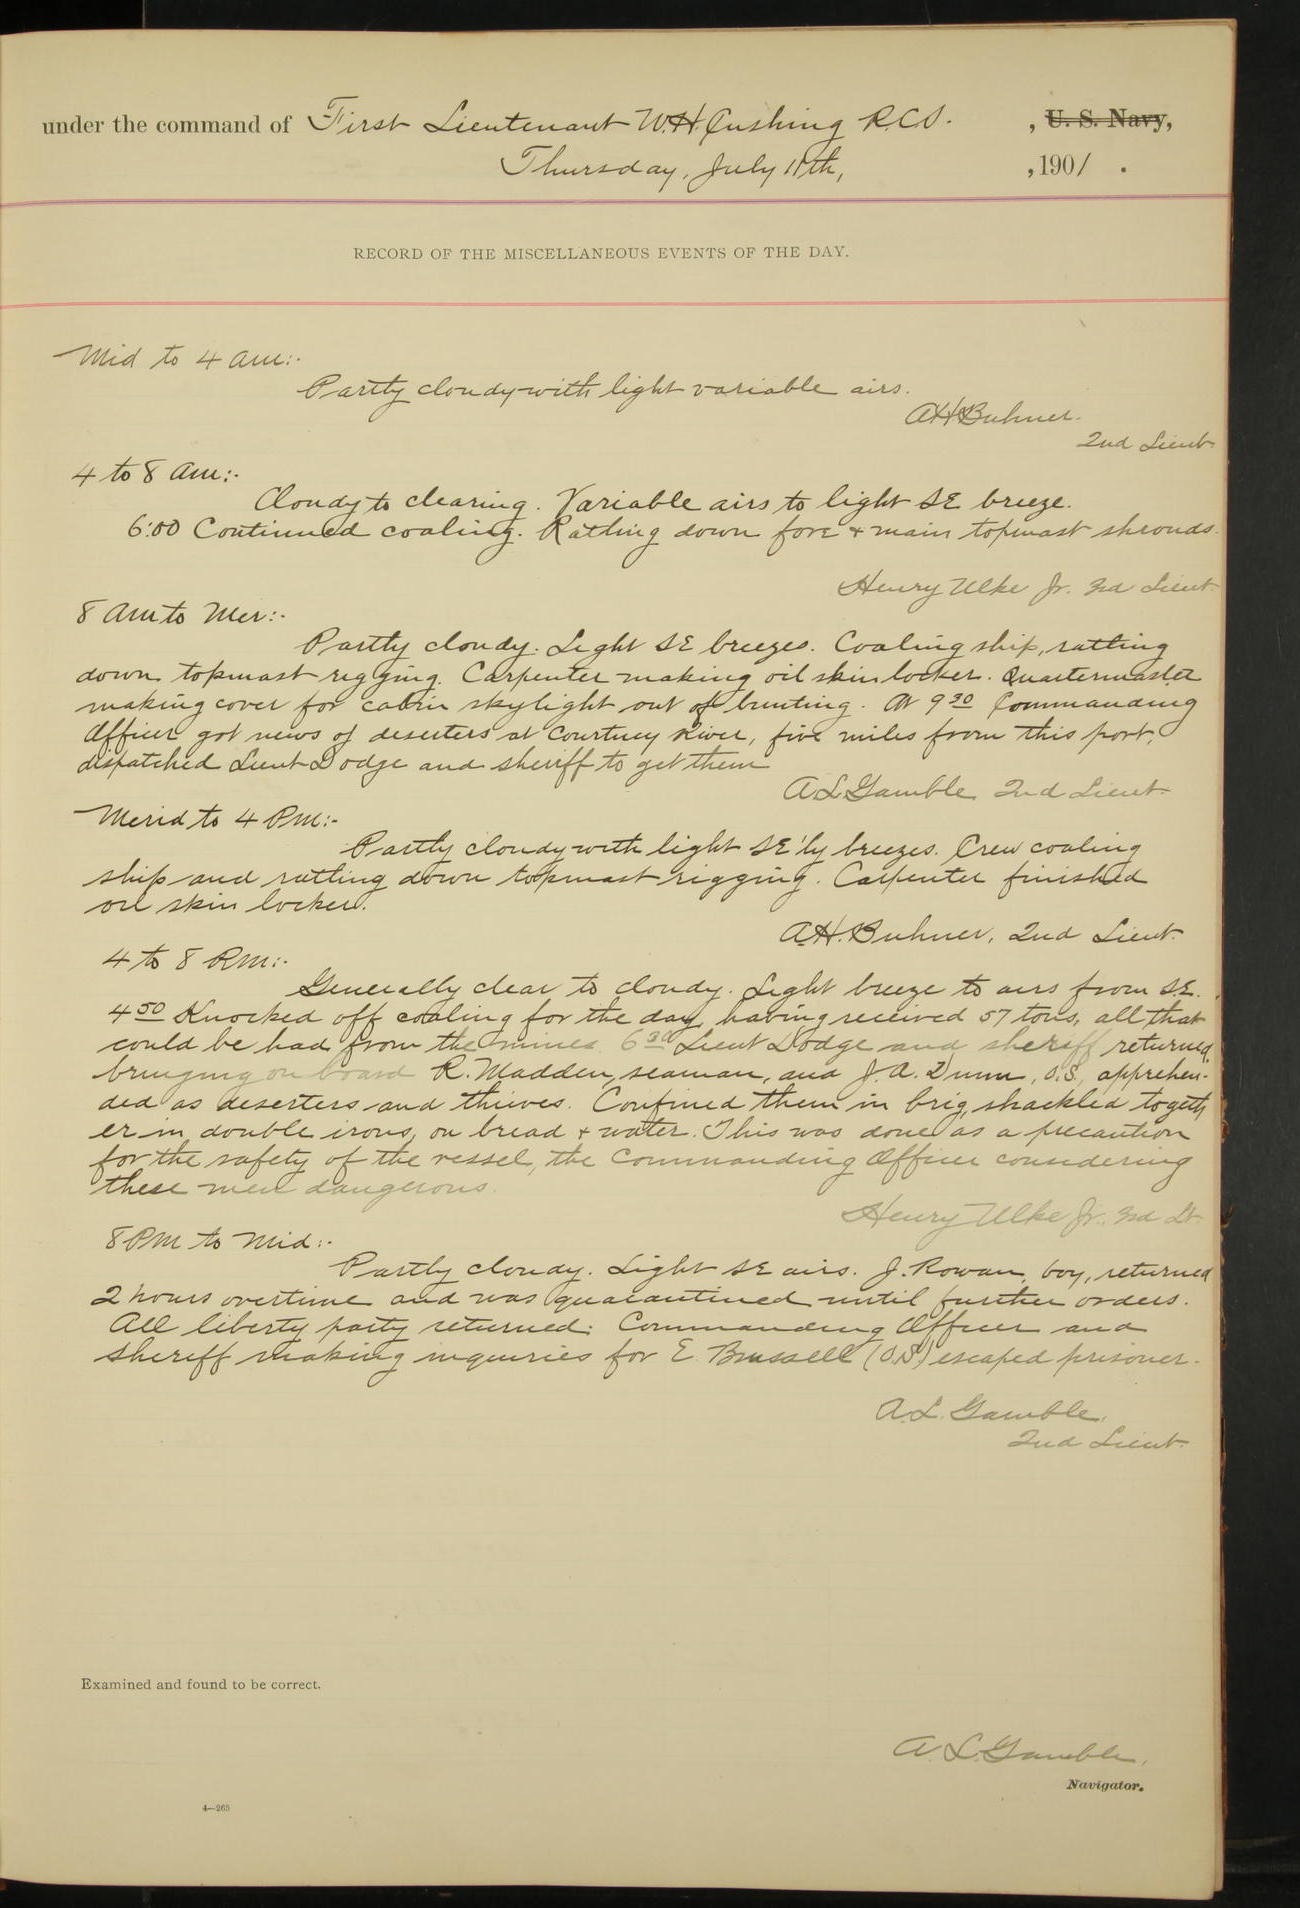 under the command of First Lieutenant W.H. Cushing R.C.S. , U. S. Navy,
Thursday, July 11th, , 1901 .
RECORD OF THE MISCELLANEOUS EVENTS OF THE DAY.
Mid to 4 am:-
Partly cloudy with light variable airs.
A.H. Buhner.
2nd Lieut.
4 to 8 am:-
Cloudy to clearing. Variable airs to light SE breeze.
6:00 Continued coaling. Ratling down fore & main topmast shrouds.
Henry Ulke Jr. 3rd Lieut.
8 am to Mer:-
Partly cloudy. Light SE breezes. Coaling ship, ratling
down topmast rigging. Carpenter making oil skin locker. Quartermaster
making cover for cabin skylight out of bunting. At 9 30 Commanding
Officer got news of deserters at Courtney River, five miles from this port,
dispatched Lieut Dodge and sheriff to get them
A L Gamble 2nd Lieut.
Merid to 4 PM:-
Partly cloudy with light SE'ly breezes. Crew coaling
ship and ratling down topmast rigging. Carpenter finished
oil skin locker.
A.H. Buhner, 2nd Lieut.
4 to 8 PM:-
Generally clear to cloudy. Light breeze to airs from SE.
4 50 Knocked off coaling for the day, having received 57 tons, all that
could be had from the mines. 6 30 Lieut Dodge and sheriff returned,
bringing on board R. Madden, seaman, and J. A. Dunn, O.S., apprehen-
ded as deserters and thieves. Confined them in brig, shackled togeth
er in double irons, on bread & water. This was done as a precaution
for the safety of the vessel, the Commanding Officer considering
these men dangerous.
Henry Ulke Jr. 3rd Lt.
8 PM to Mid:-
Partly cloudy. Light SE airs. J. Rowan, boy, returned
2 hours overtime and was quarantined until further orders.
All liberty party returned. Commanding Officer and
Sheriff making inquiries for E. Brussell (O.S.) escaped prisoner.
A. L. Gamble,
2nd Lieut.
Examined and found to be correct.
A. L. Gamble,
Navigator.
4—265